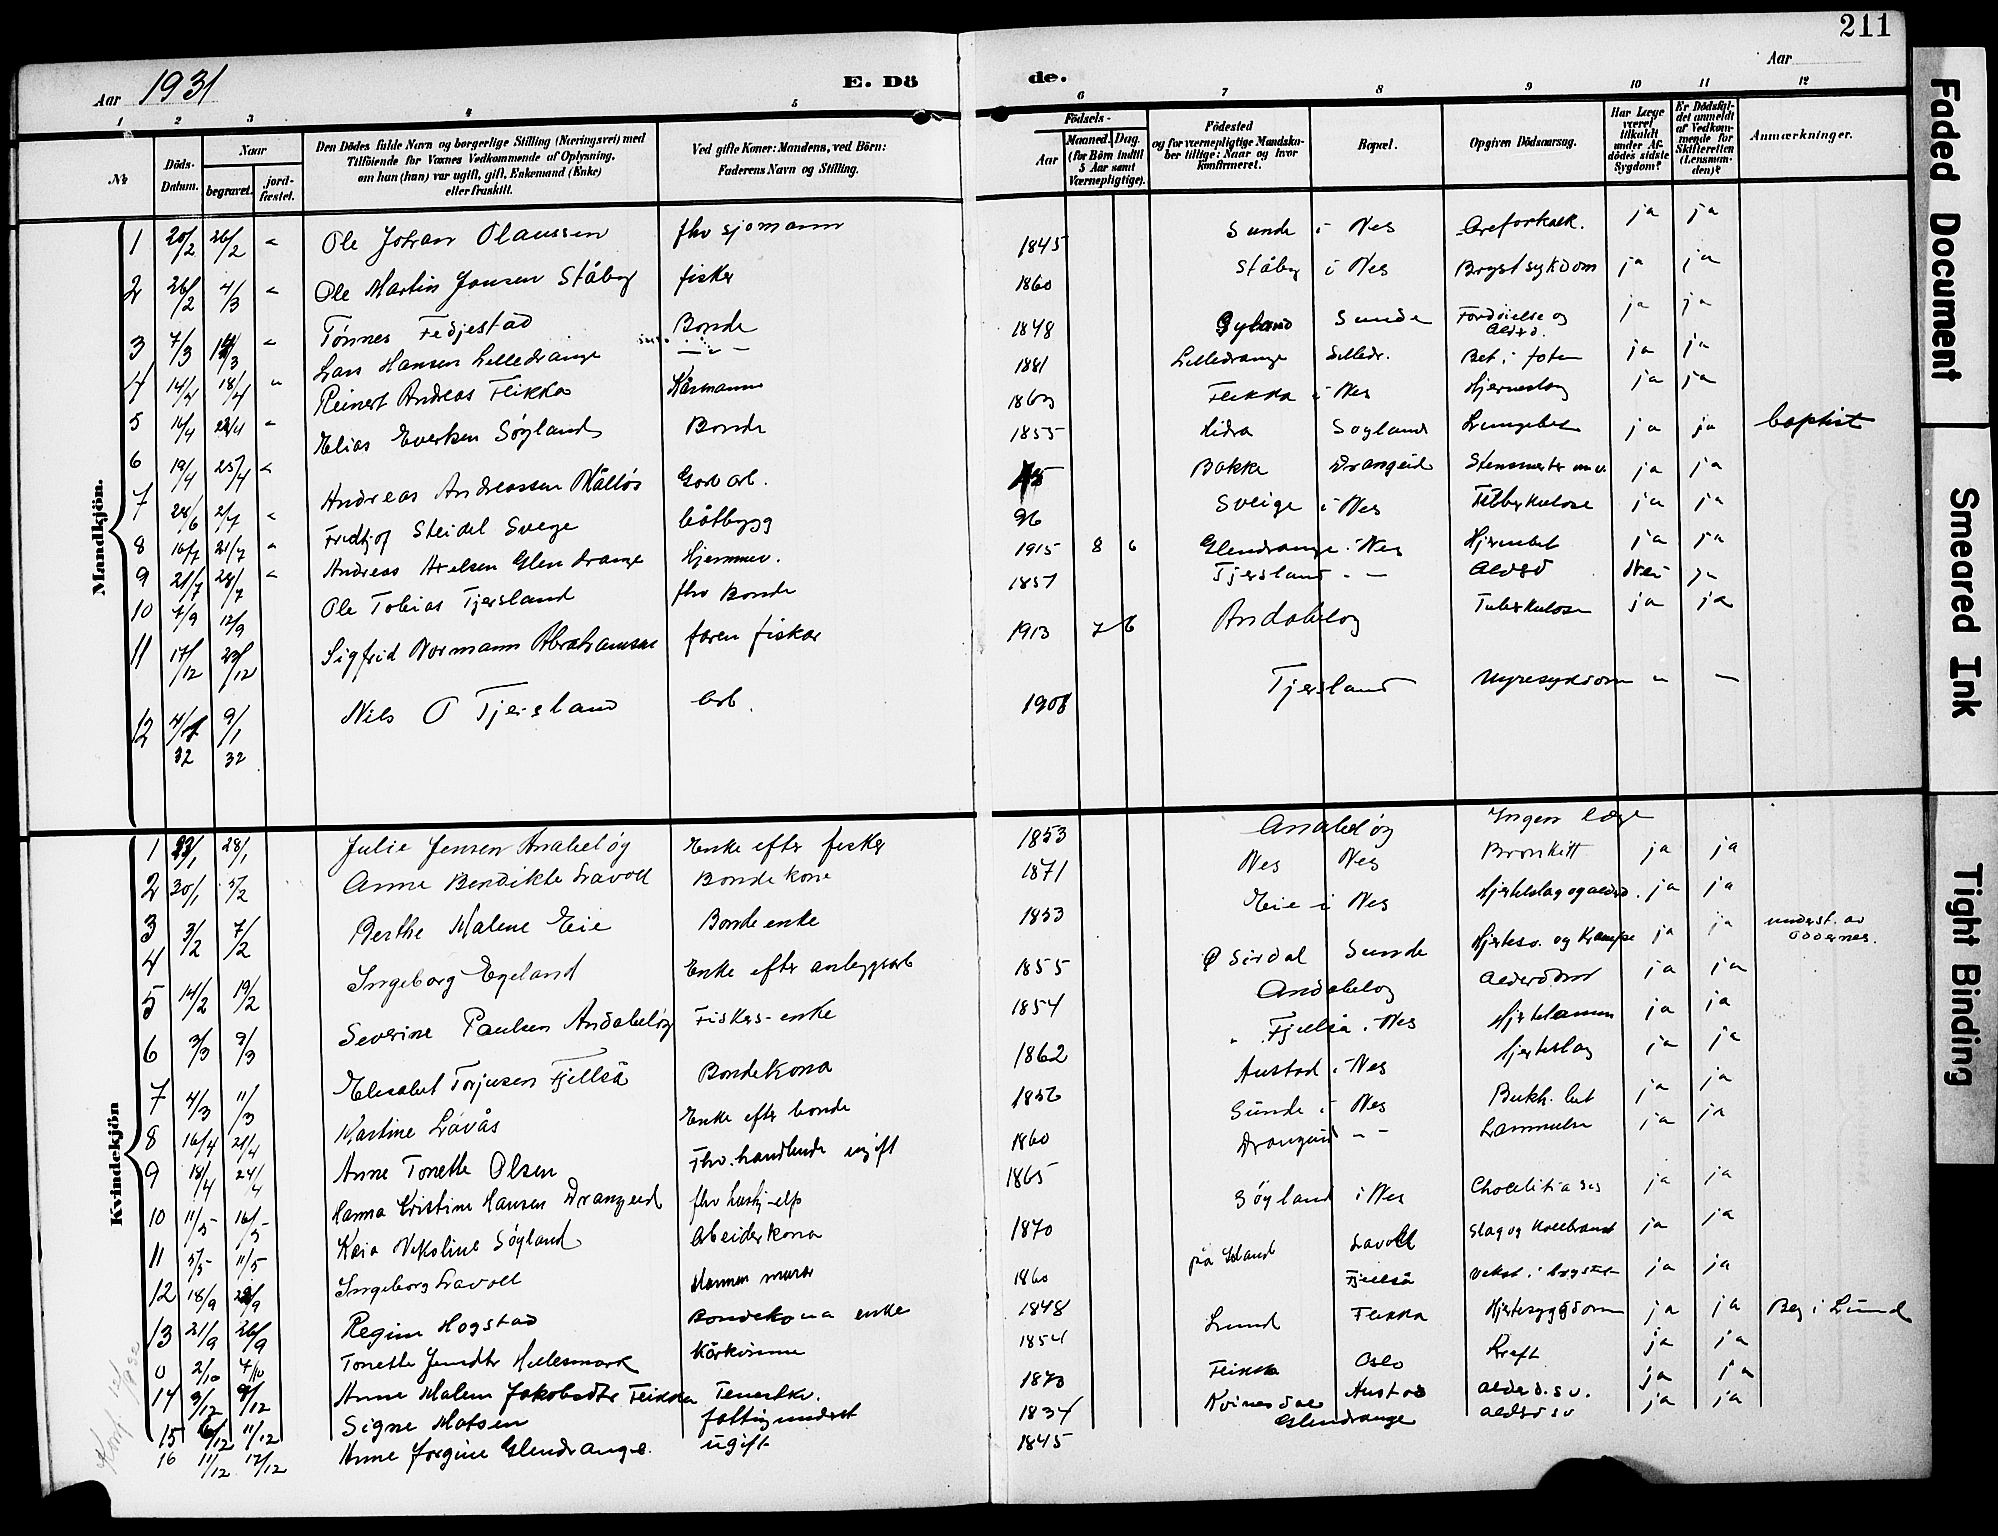 211
Aar 1931
E. Döde.
Aar
1 2 3 4 5 6 7 8 9 10 11 12
No
Döds-Datum.
Naar
begravet.
jordfæstet.
Den Dödes fulde Navn og borgerlige Stilling (Næringsvei) med
Tilföiende for Voxnes Vedkommende af Oplysning,
om han (hun) var ugift, gift, Enkemand (Enke)
eller fraskilt.
Ved gifte Koner: Mandens, ved Börn:
Faderens Navn og Stilling.
Födsels-
Aar
Maaned. Dag.
(for Börn indtil
5 Aar samt
Værnepligtige).
Födested
og for værnepligtige Mandskaber tillige: Naar og hvor
konfirmeret.
Bopæl.
Opgiven Dödsaarsag.
Har Læge
været
tilkaldt
under Afdödes sidste
Sygdom?
Er Dödsfaldet anmeldt
af Vedkommende for
Skifteretten
(Lensmanden)?
Anmærkninger.
Mandkjön.
1 20/2 26/2 " Ole Johan Olaussen fhv sjømann 1845 Sunde i Nes Areforkalk. ja ja
2 26/2 4/3 " Ole Martin Jonsen Ståby fisker 1860 Ståby i Nes Brystsykdom ja ja
3 7/3 14/3 " Tønnes Fedjestad Bonde 1848 Gyland Sunde Fordøielse og alderd. ja ja
4 14/4 18/4 " Lars Hansen Lilledrange - " - 1881 Lilledrange Lilledr. Bet. i foten ja ja
5 16/4 22/4 " Reinert Andreas Fleikka Kårmann Fleikka i Nes Hjerneslag ja ja
6 19/4 25/4 " Elias Evertsen Søyland Bonde 1855 Hidra Søyland Lungebet ja ja baptist
7 28/6 2/7 " Andreas Andreassen Garb arb. Bakke Drangeid ja ja
8 16/7 21/7 " Fridtjof Steidel Svege båtbygg 96 Sveige i Nes Tuberkulose ja ja
9 21/7 28/7 " Andreas Axelsen Glendrange Hjemmev. 1915 8 6 Glendrange i Nes Hjernebet ja ja
10 7/9 12/9 Ole Tobias Tjersland fhv Bonde 1857 Tjersland - - Alderd Nei ja
11 17/12 23/12 Sigfrid Normann Abrahamsen faren fisker 1913 7 6 Andabeløy Tuberkulose ja ja
12 4/1 32 9/1 32 Nils O Tjersland Arb. 1908 Tjersland Nyresykdom " —
Kvindekjön
1 23/1 28/1 Julie Jensen Anabeløy Enke efter fisker 1853 Anabeløy Ingen læge
2 30/1 5/2 Anne Bendikte Lavoll Bondekone 1871 Nes Nes Bronkitt ja ja
3 3/2 7/2 Berthe Malene Eie Bonde enke 1853 Eie i Nes Hjerteslag og alderd. ja ja
4 Ingeborg Egeland Enke efter anleggsarb 1855 Ø Sirdal Sunde Hjertesv. og Krampe ja ja underst. av Oddernes.
5 14/2 19/2 Severine Paulsen Andabeløy Fiskers-enke 1854 Andabeløy Alderdom ja ja
6 3/3 9/3 Elisabet Torjusen Fjellså Bondekona 1862 " Fjellså i Nes Hjertelammm ja ja
7 4/3 11/3 Martine Løvås Enke efter bonde 1852 Austad i Nes Hjerteslag ja ja
8 16/4 21/4 Anne Tonette Olsen Fhv. handlende ugift 1860 Sunde i Nes Bukh. bet ja ja
9 18/4 24/4 Hanna Kristine Hansen Drangeid fhv huskj-elp 1865 Drangeid - - Lammelse ja ja
10 11/5 16/5 Kaia Vekoline Søyland Arbeiderkona 1870 Søyland i Nes Cholelitiasis ja ja
11 5/5 11/5 Ingeborg Lavoll Mannen murer 1860 på Lland Lavoll Slag og Koldbrand ja ja
12 18/9 22/9 Regine Hogstad Bondekona enke 1848 Fjellså Vekst i brystet ja ja
13 21/9 26/9 Tonette Jensdtr Hellesmark Kårkvinne 1854 Lund Feikka Hjertesygdom ja ja Beg i Lund
0 2/10 7/10 Anne Malene Jakobsdtr Feikka Tenestkv. 1873 Feikka Oslo Kreft ja ja
14 3/12 9/12 Signe Matsen fattigunderst 1834 Kvinesdal Austad alderd.sv. ja ja
15 6/12 11/12 Anne Jorgine Glendrange ugift 1845 Glendrange alderdsv ja ja
16 11/12 17/12
Faded Document
Smeared Ink
Tight Binding